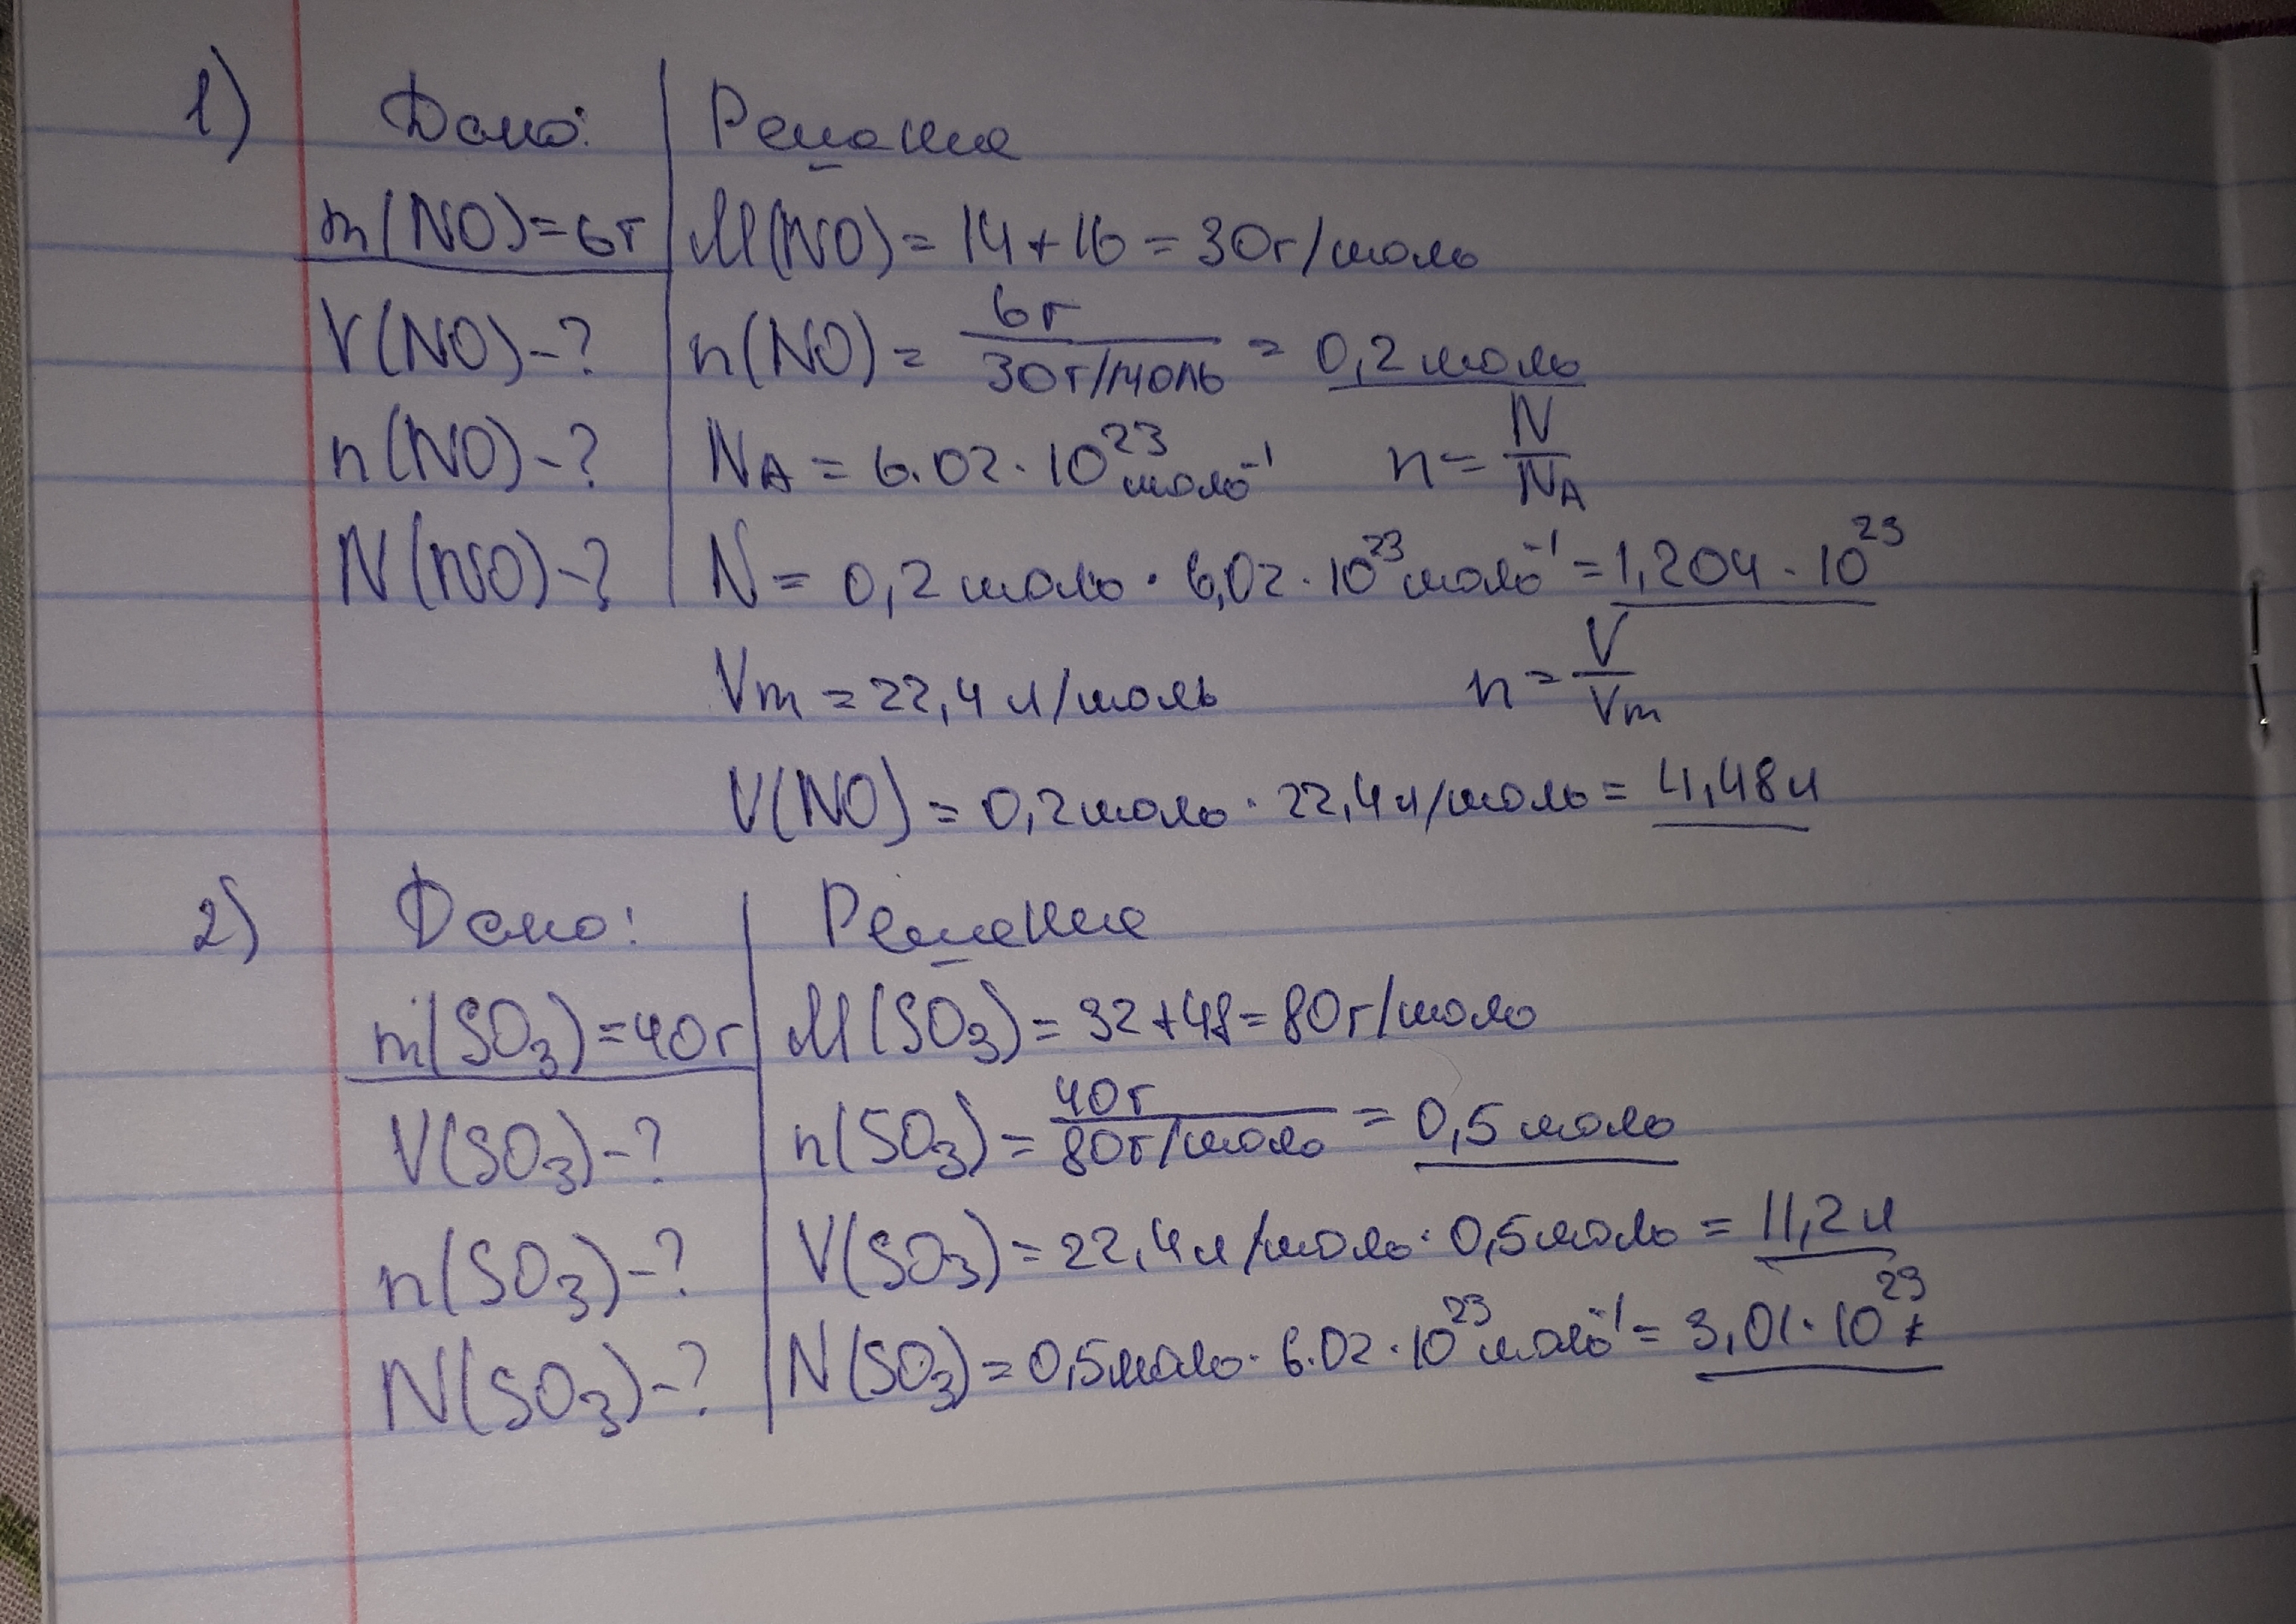 1) Дано: Решение
m(NO)=6г M(NO)= 14+16 = 30г/моль
V(NO)-? n(NO)= 6г/30г/моль = 0,2 моль
n(NO)-? NA = 6.02·10²³ моль⁻¹ n= N/NA
N(NO)-? N= 0,2 моль · 6,02·10²³ моль⁻¹ = 1,204·10²³
Vm = 22,4 л/моль n= V/Vm
V(NO) = 0,2моль · 22,4л/моль = 4,48л
2) Дано: Решение
m(SO₃)=40г M(SO₃)= 32+48=80г/моль
V(SO₃)-? n(SO₃)= 40г/80г/моль = 0,5 моль
n(SO₃)-? V(SO₃)=22,4л/моль·0,5моль = 11,2л
N(SO₃)-? N(SO₃)=0,5моль·6.02·10²³моль⁻¹= 3,01·10²³